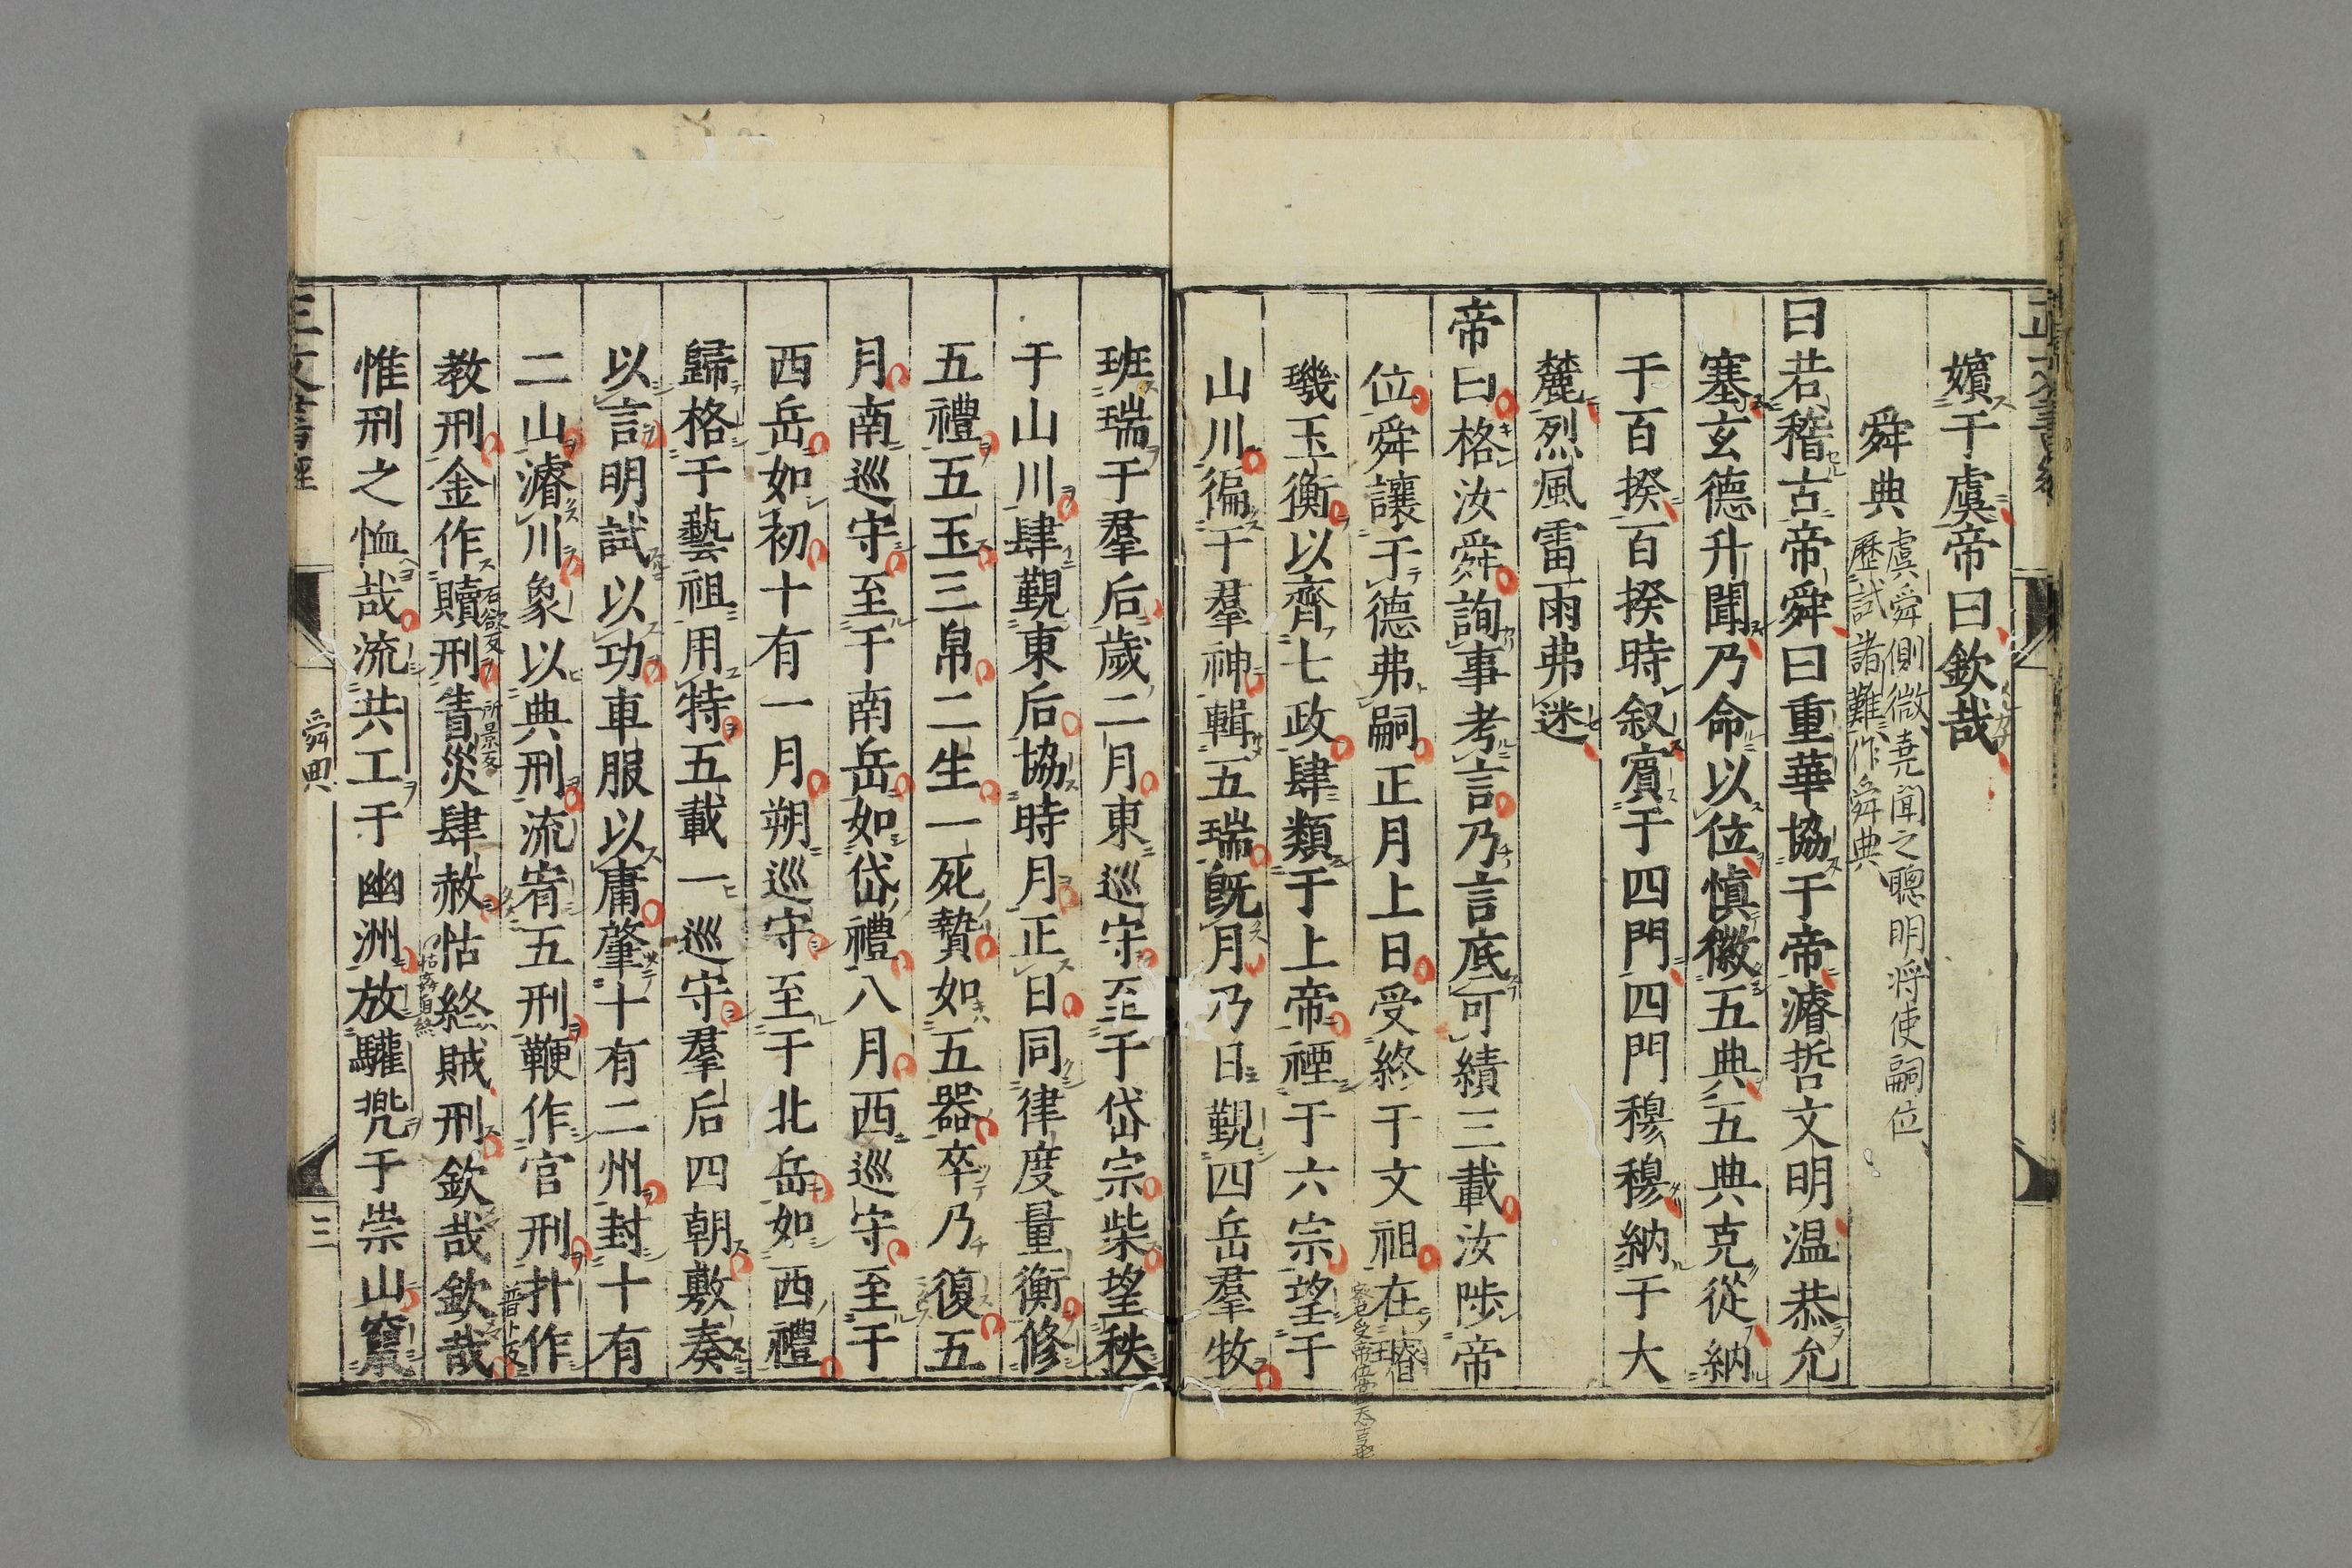 嬪于虞帝曰欽哉
舜典
虞舜側微堯聞之聰明将使嗣位
歷試諸難作舜典
曰若稽古帝舜曰重華協于帝濬哲文明温恭允
塞玄德升聞乃命以位慎徽五典五典克從納
于百揆百揆時叙賔于四門四門穆穆納于大
麓烈風雷雨弗迷
帝曰格汝舜詢事考言乃言底可績三載汝陟帝
位舜讓于德弗嗣正月上日受終于文祖在璿
璣玉衡以齊七政肆類于上帝禋于六宗望于
山川徧于羣神輯五瑞既月乃日覲四岳羣牧
班瑞于羣后歲二月東巡守至于岱宗柴望秩
于山川肆覲東后協時月正日同律度量衡修
五禮五玉三帛二生一死贄如五器卒乃復五
月南巡守至于南岳如岱禮八月西巡守至于
西岳如初十有一月朔巡守至于北岳如西禮
歸格于藝祖用特五載一巡守羣后四朝敷奏
以言明試以功車服以庸肇十有二州封十有
二山濬川象以典刑流宥五刑鞭作官刑扑作
教刑金作贖刑眚災肆赦怙終賊刑欽哉欽哉
惟刑之恤哉流共工于幽洲放驩兠于崇山竄
舜典
三